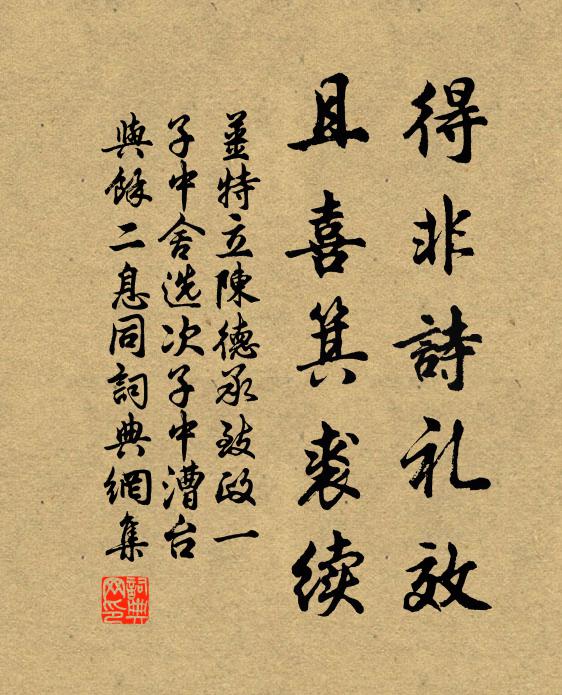 得非詩礼效
且喜箕裘续
姜特立陳德承致政一
子中舍选次子中漕台
與餘二息同詞典網集
詞典网印